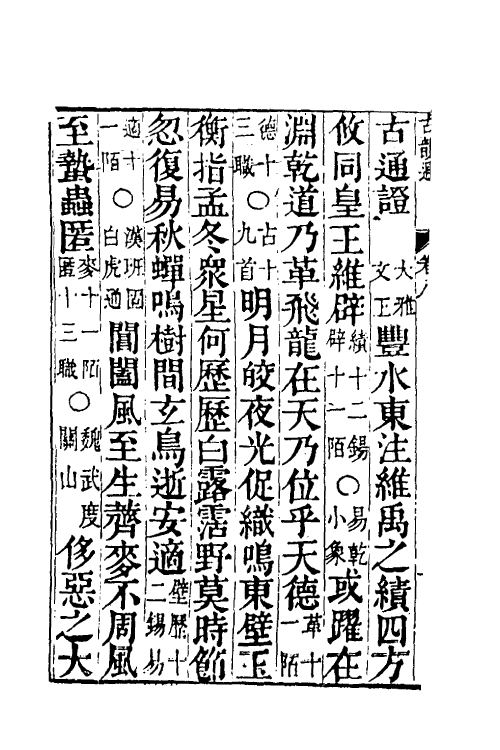 古韻通 卷八
古通證大雅文王豐水東注維禹之績四方
攸同皇王維辟績十二錫辟十一陌○易乾小象或躍在
淵乾道乃革飛龍在天乃位乎天德革十一陌
德十三職○古十九首明月皎夜光促織鳴東壁玉
衡指孟冬衆星何歷歷白露霑野莫時節
忽復易秋蟬鳴樹間玄鳥逝安適壁歷十二錫易
適十一陌○漢班固白虎通閶闔風至生薺麥不周風
至蟄蟲匿麥十一陌匿十三職○魏武度關山侈惡之大